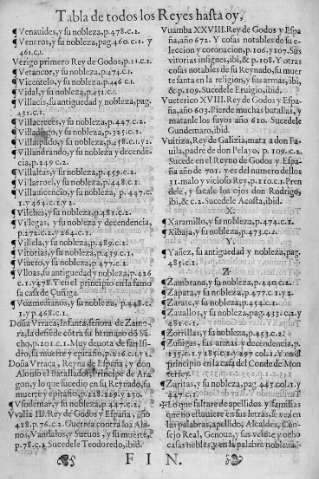 Tabla de todos los Reyes hasta oy.
¶Venauides, y su nobleza, p.478.c.2.
¶Veneros, y su nobleza, pag.460.c.2. y
461.c.1
Verigo primero Rey de Godos, p.11.c.1.
¶Vetancor, y su nobleza, p.474.c.1
¶Vicentelo, y su nobleza, p.461.c.
¶Vidal, y su nobleza, p.451.c.
¶Villacis, su antiguedad y nobleza, pag.
431.c.1.
¶Villacreces, y su nobleza, p.447.c.2.
y su nobleza, p.325.c.1.
y su nobleza, p.478.c.1.
¶Villandrando, y su nobleza y decenden
cia, p.249.c.2.
¶Villaltas, y su nobleza, p.459.c.
¶Villarroel, y su nobleza, p.448.c.1
¶Villauicencio, y su nobleza, p.447.c.
1. y 464.c.1. y 2.
¶Vilches, y su nobleza, p.481.c.1.
¶Villegas, y su nobleza y decendencia,
p.272.c.2. y 264.c.1.
¶Villela, y su nobleza, p.489.c.2.
¶Vitorias, y su nobleza, p.451.c.
¶Viueto, y su nobleza, p.477.c.
¶Vlloas, su antiguedad y nobleza, p.226
c.1. y 478. Ten el principio en la famo
sa casa de Çuñiga.
¶Vozmedianos, y su nobleza, p.448.c.
1. y p.468.c.2.
Doña Vrraca, Infanta, señora de Zamo-
ra, la defiende de su hermano dō San
cho, p.101.c.1. Muy deuota de san Isi-
dro, su muerte y epitafio, p.116.c.1.
Doña Vrraca, Reyna de España, y don
Alonso el Batallador, Principe de Ara
gon, y lo que sucedio en su Reynado, su
muerte y epitafio, p.
y su nobleza, p.447.c.1.
Vvalia III. Rey de Godos y España, año
418. p.76.c.2. Guerrea contra los Ala-
nos, Vandalos, y Sueuos, y su muerte,
p.78.c.2. Sucede Teodoredo, ibid.
Vuamba XXVIII. Rey de Godos y Espa
ña, año 672. Y cosas notables de su e-
leccion y coronacion, p.106. y 107. Sus
vitorias insignes, ibi, & p.108. Y otras
cosas notables de su Reynado, su muer
te santa en la religion, y sus armas, ibi,
& p.109. Sucede Eruigio, ibid.
Vueterico XVIII. Rey de Godos y Espa
ña, año 603. Pierde muchas batallas, y
matanle los suyos año 610. Sucede
Gundemaro, ibid.
Vuitiza, Rey de Galizia, mata a don Fa-
uila, padre de don Pelayo, p.109.c.2.
Sucede en el Reyno de Godos y Espa-
ña año de 701. y es del numero dellos
31. malo y vicioso Rey, p.110.c.1. Pren
dele, y sacale los ojos don Rodrigo,
ibi, & c.2. Sucede Acosta, ibid.
X.
¶Xaramillo, y su nobleza, p.474.c.1.
¶Xibaja, y su nobleza, p.473.c.
Y.
¶Yañez, su antiguedad y nobleza, pag.
485.c.1.
Z
¶Zambrana, y su nobleza, p.440.c.
¶Zapata, y su nobleza, p.477.c.1. y 2.
¶Zarate, y su nobleza, p.454.c.1.
¶Zauallos, y su nobleza, pag.433.c.2. y
481.c.1.
¶Zorrillas, y su nobleza, p.453.c.
¶Zuñigas, sus armas y decendencia, p.
Y en el
principio en la casa del Conde de Mon
terrei.
¶Zuritas, y su nobleza, pag.447.col.1. y
447.c.1.
¶Lo que faltare de apellidos y familias
que no estuuiere en sus letras, se vea en
las palabras, apellidos, Alcaldes, Con-
sejo Real, Genoua, y sus veinte y ocho
casas nobles, y en la palabra nobleza.
FIN.